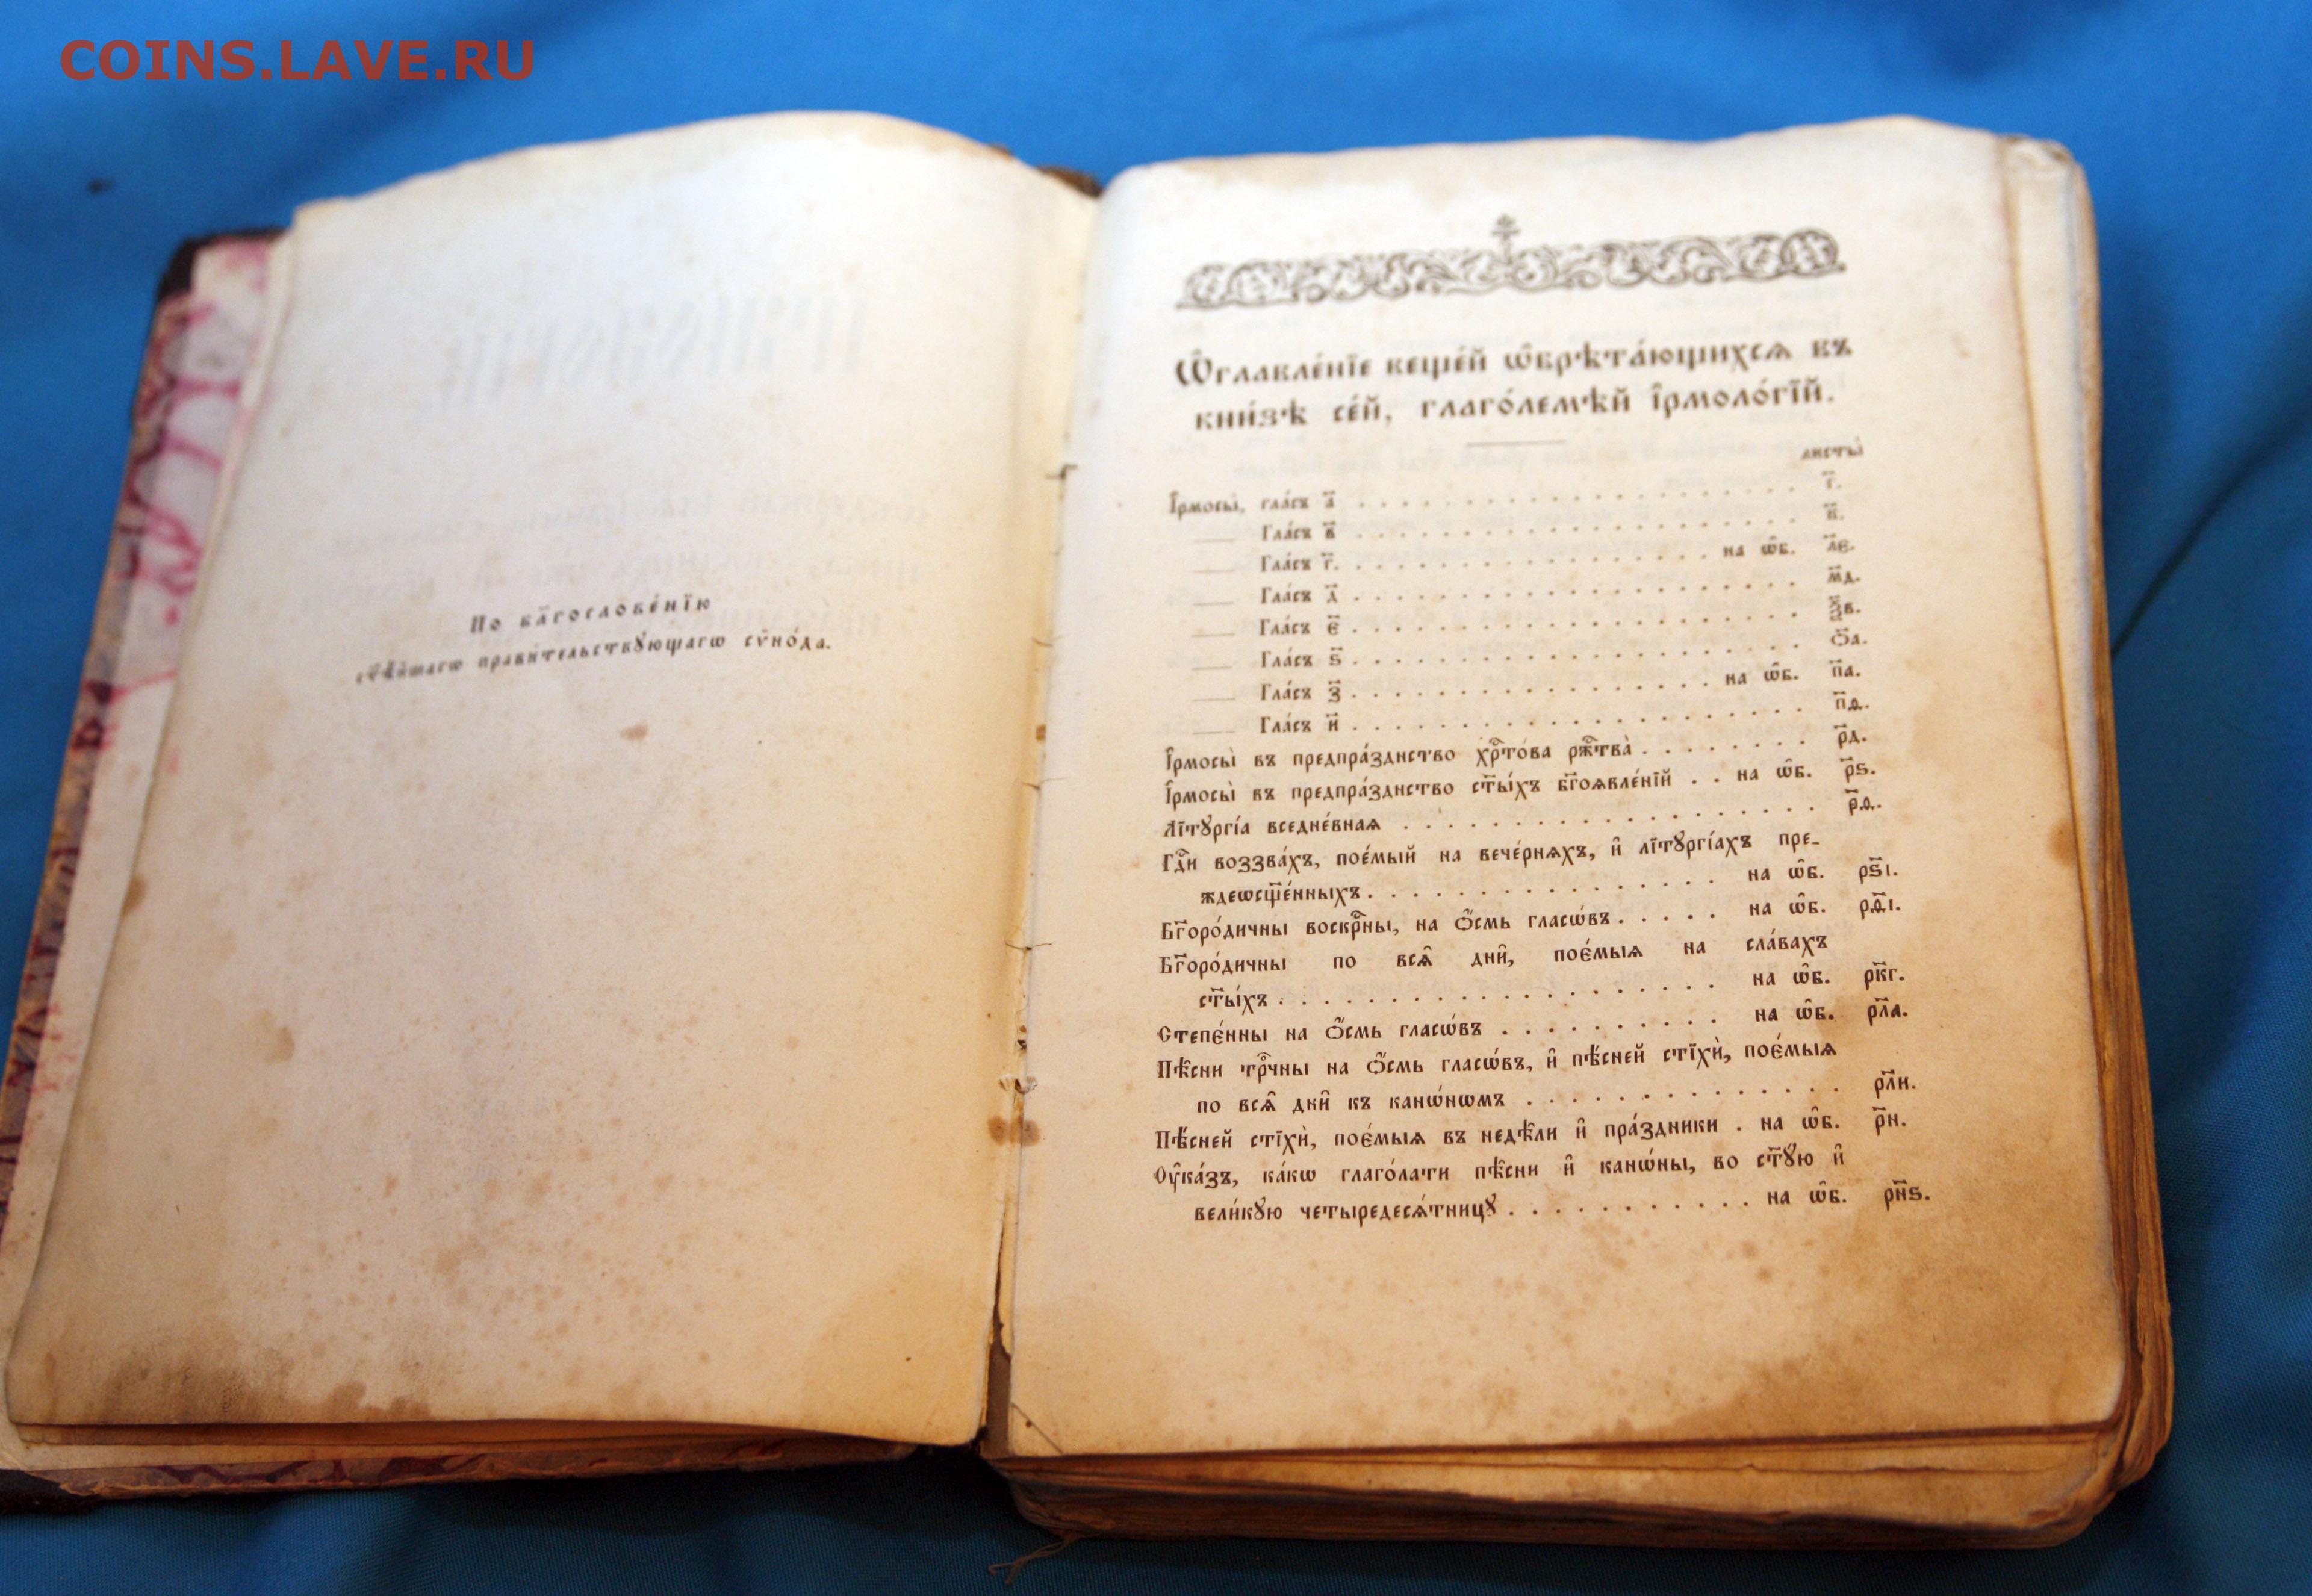 COINS.LAVE.RU
По бл҃гослове́нїю
ст҃ѣ́йшагѡ прави́тельствꙋющагѡ сѷно́да.
Ѡ҆главле́нїе веще́й ѡ҆брѣта́ющихсѧ въ
кни́зѣ се́й, глаго́лемѣй і҆рмоло́гїй.
листы̀
І҆рмосы̀, гла́съ а҃ . . . . г҃.
Гла́съ в҃ . . . .
Гла́съ г҃. . . . . на ѡ҆б. л҃є.
Гла́съ д҃ . . . . м҃д.
Гла́съ є҃ . . . . ѯ҃в.
Гла́съ ѕ҃ . . . . ѻ҃а.
Гла́съ з҃ . . . . на ѡ҆б. п҃а.
Гла́съ и҃ . . . . п҃ѳ.
І҆рмосы̀ въ предпра́зднство хрⷭ҇то́ва рж҇тва̀ . . . . р҃д.
І҆рмосы̀ въ предпра́зднство ст҃ы́хъ бг҃оѧвле́нїй . . на ѡ҆б. р҃ѕ.
Лїтꙋргі́а вседне́внаѧ . . . . р҃ѳ.
Гдⷭ҇и воззва́хъ, пое́мый на вече́рнѧхъ, и҆ лїтꙋргі́ахъ пре-
ждеѡсщ҃е́нныхъ . . . . на ѡ҆б. рѕ҃і.
Бг҃оро́дичны воскрⷭ҇ны, на ѻ҆́смь гласѡ́въ . . . . на ѡ҆б. рѳ҃і.
Бг҃оро́дичны по всѧ̑ дни̑, поє́мыѧ на сла́вахъ
ст҃ы́хъ . . . . на ѡ҆б. рк҃г.
Степє́нны на ѻ҆́смь гласѡ́въ . . . . на ѡ҆б. рл҃а.
Пѣ̑сни трⷪ҇чны на ѻ҆́смь гласѡ́въ, и҆ пѣ́сней стїхѝ, поє́мыѧ
по всѧ̑ дни̑ къ канѡ́нѡмъ . . . . рл҃и.
Пѣ́сней стїхѝ, поє́мыѧ въ недѣ̑ли и҆ пра́здники . на ѡ҆б. р҃н.
Оу҆ка́зъ, ка́кѡ глаго́лати пѣ̑сни и҆ канѡ́ны, во ст҃ꙋ́ю и҆
вели́кꙋю четыредесѧ́тницꙋ . . . . на ѡ҆б. рн҃ѕ.